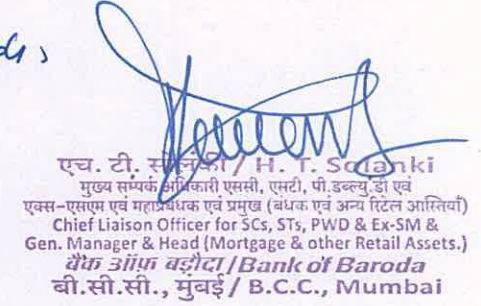 एच. टी. सोलंकी / H. T. Solanki
मुख्य सम्पर्क अधिकारी एससी, एसटी, पी.डब्ल्यु.डी एवं
एक्स-एसएम एवं महाप्रबंधक एवं प्रमुख (बंधक एवं अन्य रिटेल आस्तियाँ)
Chief Liaison Officer for SCs, STs, PWD & Ex-SM &
Gen. Manager & Head (Mortgage & other Retail Assets.)
बैंक ऑफ़ बड़ौदा / Bank of Baroda
बी.सी.सी., मुंबई / B.C.C., Mumbai